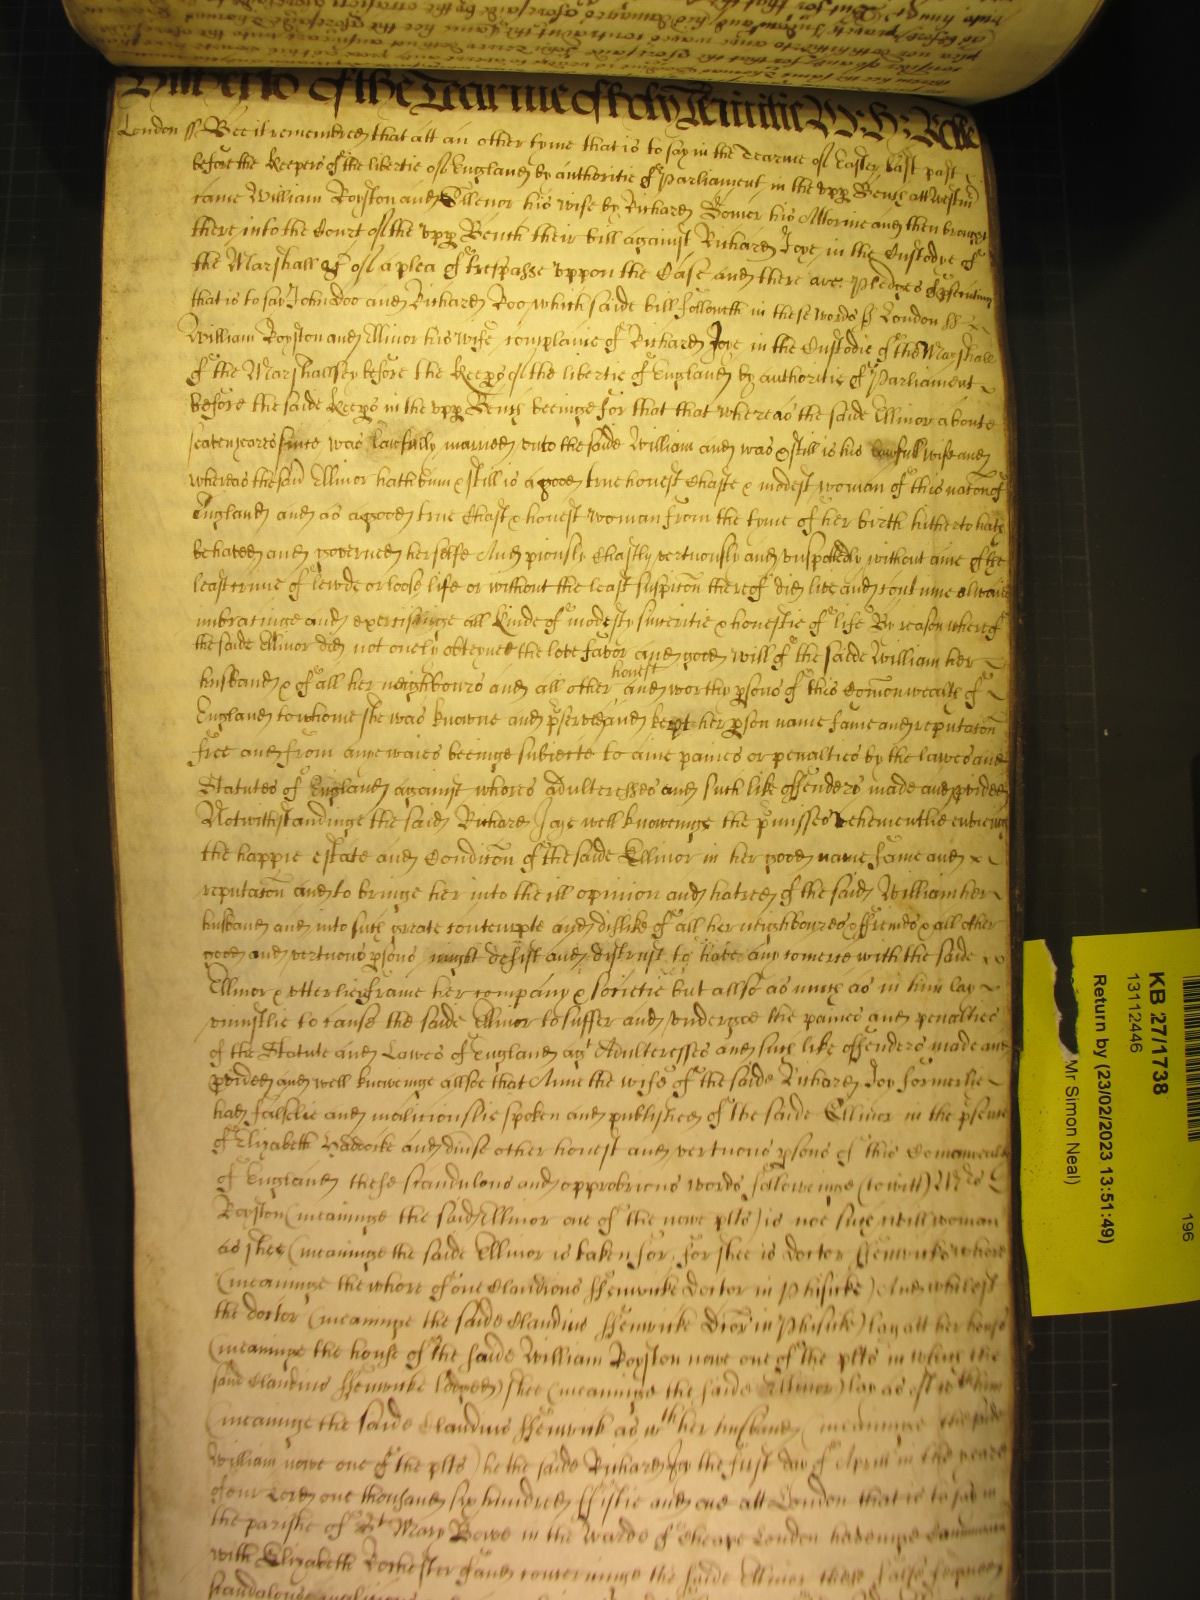 Witt der to of the Tearme of holy Trinitie W: H: Rolle
London ss Bee it remembred that att an other tyme that is to say in the Tearme of Easter last past
before the Keepers of the libertie of England by authoritie of Parliament in the vpp Bench att Westm
came William Royston and Ellenor his wife by Richard Bomer his Attornie and then brought
there into the Court of the vpp Bench their bill against Richard Joye in the Custodye of
the Marshall &c of a plea of trespasse vppon the Case and there are pledges of psecuting
that is to say John Doo and Richard Roo which saide bill followeth in these words ss London ss
William Royston and Ellinor his wife complaine of Richard Joye in the Custodie of the Marshall
of the Marshallsey before the Keeps of the libertie of England by authoritie of Parliament
before the saide Keeps in the vpp Bench beeinge for that that whereas the saide Ellinor aboute
seaven yeares since was lawfully married vnto the saide William and was & still is his lawfull wife and
whereas the said Ellinor hath bium & still is a good true honest Chaste & modest woman of this nation of
England and as a good true Chast & honest woman from the tyme of her birth hitherto hath
behaved and governed herselfe And piously Chastly vertuously and vnspotedly without anie of the
least crime of lewde or loose life or without the least suspicon thereof did live and continue alwaies
imbraceinge and exercisinge all Kinde of modesty sinceritie & honestie of life By reason whereof
the saide Ellinor did not onely obteyne the love favor and good will of the saide William her
husband & of all her neighbours and all other honest and worthy psons of this Comon wealth of
England to whome she was knowne and pserved and kept her pson name fame and reputacon
free and from anye waies beeinge subiecte to anie paines or penalties by the lawes and
Statutes of England against whores adulteresses and such like offenders made and pvided
Notwithstandinge the said Richard Joye well knoweinge the pmisses vehementlie envieing
the happie estate and Condicon of the saide Ellinor in her good name fame and
reputacon and to bringe her into the ill opinion and hatred of the said William her
husband and into such greate contempte and dislike of all her neighboures & ffreinds & all other
good and vertuous psons might desist and distrust to have any comerce with the saide
Ellinor & vtterlie refraine her company & societie but allsoe as much as in him lay
vniustlie to cause the saide Ellinor to suffer and vndergoe the paines and penalties
of the Statute and Lawes of England agt Adulteresses and such like offenders made and
pvided and well knoweinge allsoe that Anne the wife of the saide Richard Joy formerlie
had falselie and maliciouslie spoken and published of the saide Ellinor in the psence
of Elizabeth Haddocke and divse other honest and vertuous psons of this Comonwealth
of England these scandulous and opprobrious words followeinge (to witt) Mrs
Royston (meaninge the said Ellinor one of the nowe plts) is not such weill woman
as shee (meaninge the saide Ellinor is taken for, for shee is doctor ffenwicks whore
(meaninge the whore of one Claudious ffenwicke Doctor in Phisicke) And whilest
the doctor (meaninge the saide Claudius ffenwicke Doctr in Phisicke) lay att her house
(meaninge the house of the saide William Royston nowe one of the plts in which the
said Claudius ffenwicke lodged) shee (meaninge the saide Ellinor) lay as oft wth him
(meaninge the saide Claudius ffenwick as wth her husband (meaninge the said
William nowe one of the plts) he the saide Richard Joy the first day of Aprill in the yeare
of our Lord one thousand six hundred ffiftie and one att London that is to say in
the parishe of St Mary Bowe in the Warde of Cheape London haveinge Comunicacon
with Elizabeth Rochester of and concerninge the saide Ellinor these false feigned
scandalous
KB 27/1738
13112446
Return by (23/02/2023 13:51:49)
Mr Simon Neal)
196